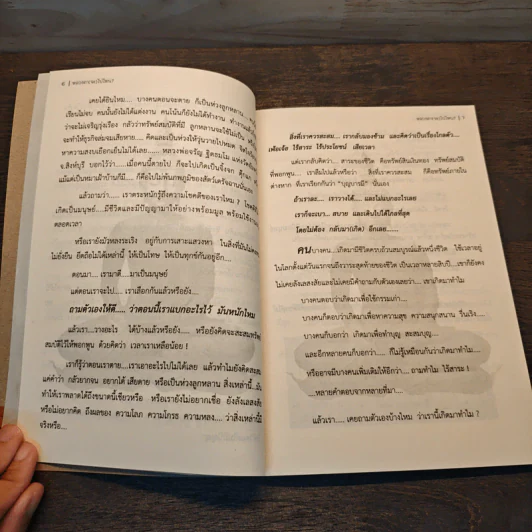 6 | หลวงตาจะไปไหน?
เคยได้ยินไหม.... บางคนตอนจะตาย ก็เป็นห่วงลูกหลาน....
เรียนไม่จบ คนนั้นยังไม่ได้แต่งงาน คนโน้นก็ยังไม่ได้ทำงาน
ว่าจะไม่เจริญรุ่งเรือง กลัวว่าทรัพย์สมบัติที่มี ลูกหลานจะใช้ไม่เป็น
จะทำให้ธุรกิจล่มจมเสียหาย.... คิดและเป็นห่วงวุ่นวายไปหมด
หาความสงบเยือกเย็นไม่ได้เลย.... หลวงพ่อจรัญ ฐิตธมโม แห่งวัดอัมพวัน
จ.สิงห์บุรี บอกไว้ว่า.... เมื่อคนนี้ตายไป ก็จะไปเกิดเป็นจิ้งจก ตุ๊กแก
แม้แต่เป็นหมาเฝ้าบ้านก็มี.... ก็คือไปไม่พ้นภพภูมิของสัตว์เดรัจฉานนั่นเอง
แล้วถามว่า.... เราตระหนักรู้ถึงความโชคดีของเราไหม ?
เกิดเป็นมนุษย์....มีชีวิตและมีปัญญามาให้อย่างพร้อมมูล พร้อมใช้งาน
ตลอดเวลา
หรือเรายังมัวหลงระเริง อยู่กับการเสาะแสวงหา ในสิ่งที่มันไม่
ไม่ยั่งยืน ยึดถือไม่ได้เหล่านี้ ให้เป็นโทษ ให้เป็นทุกข์กันอยู่อีก....
ตอนมา.... เรามาดี....มาเป็นมนุษย์
แต่ตอนเราจะไป.... เราเลือกกันแล้วหรือยัง...
ถามตัวเองให้ดี..... ว่าตอนนี้เราแบกอะไรไว้ มันหนักไหม
แล้วเรา....วางอะไร ได้บ้างแล้วหรือยัง.... หรือยังคิดจะสะสมทรัพย์
สมบัติไว้ให้พอกพูน ด้วยคิดว่า เวลาเราเหลือน้อย !
เราก็รู้ว่าตอนเราตาย....เราเอาอะไรไปไม่ได้เลย แล้วทำไมยังคิดสะสม
แค่คำว่า กลัวยากจน อยากได้ เสียดาย หรือเป็นห่วงลูกหลาน สิ่งเหล่านี้...มัน
ทำให้เราพลาดได้ถึงขนาดนี้เชียวหรือ หรือเรายังไม่อยากเชื่อ ยังลังเลสงสัย
หรือไม่อยากคิด ถึงผลของ ความโลภ ความโกรธ ความหลง.... ว่าสิ่งเหล่านี้มี
จริงหรือ...
หลวงตาจะไปไหน? | 7
สิ่งที่เราควรสะสม... เรากลับมองข้าม และคิดว่าเป็นเรื่องไกลตัว...
เพ้อเจ้อ ไร้สาระ ไร้ประโยชน์ เสียเวลา
แต่เรากลับคิดว่า.... สาระของชีวิต คือทรัพย์สินเงินทอง ทรัพย์สมบัติ
ที่พอกพูน.... เราลืมไปแล้วหรือว่า สิ่งที่เราควรสะสม.... ก็คือทรัพย์ภายใน
ต่างหาก ที่เราเรียกกันว่า "บุญบารมี" นั่นเอง
ถ้าเราละ.... เราวางได้.... และไม่แบกอะไรเลย
เราก็จะเบา... สบาย และเดินไปได้ไกลที่สุด
โดยไม่ต้อง กลับมา(เกิด) อีกเลย......
คนบางคน...เกิดมามีชีวิตครบถ้วนสมบูรณ์แล้วหนึ่งชีวิต ใช้เวลาอยู่
ในโลกตั้งแต่วันแรกจนถึงวาระสุดท้ายของชีวิต เป็นเวลาหลายสิบปี....เขาก็ยังคง
ไม่เคยลังเลสงสัยและไม่เคยมีคำถามกับตัวเองเลยว่า.... เขาเกิดมาทำไม
บางคนตอบว่าเกิดมาเพื่อใช้กรรมเก่า....
บางคนก็ตอบว่าเกิดมาเพื่อหาความสุข ความสนุกสนาน รื่นเริง....
บางคนก็บอกว่า.... เกิดมาเพื่อทำบุญ สะสมบุญ....
และอีกหลายคนก็บอกว่า..... ก็ไม่รู้เหมือนกันว่าเกิดมาทำไม....
หรืออาจมีบางคนเพิ่มเติมให้อีกว่า.... ถามทำไม ไร้สาระ !
....หลายคำตอบจากหลายที่มา....
แล้วเรา.... เคยถามตัวเองบ้างไหม ว่าเรานี้เกิดมาทำไม ?